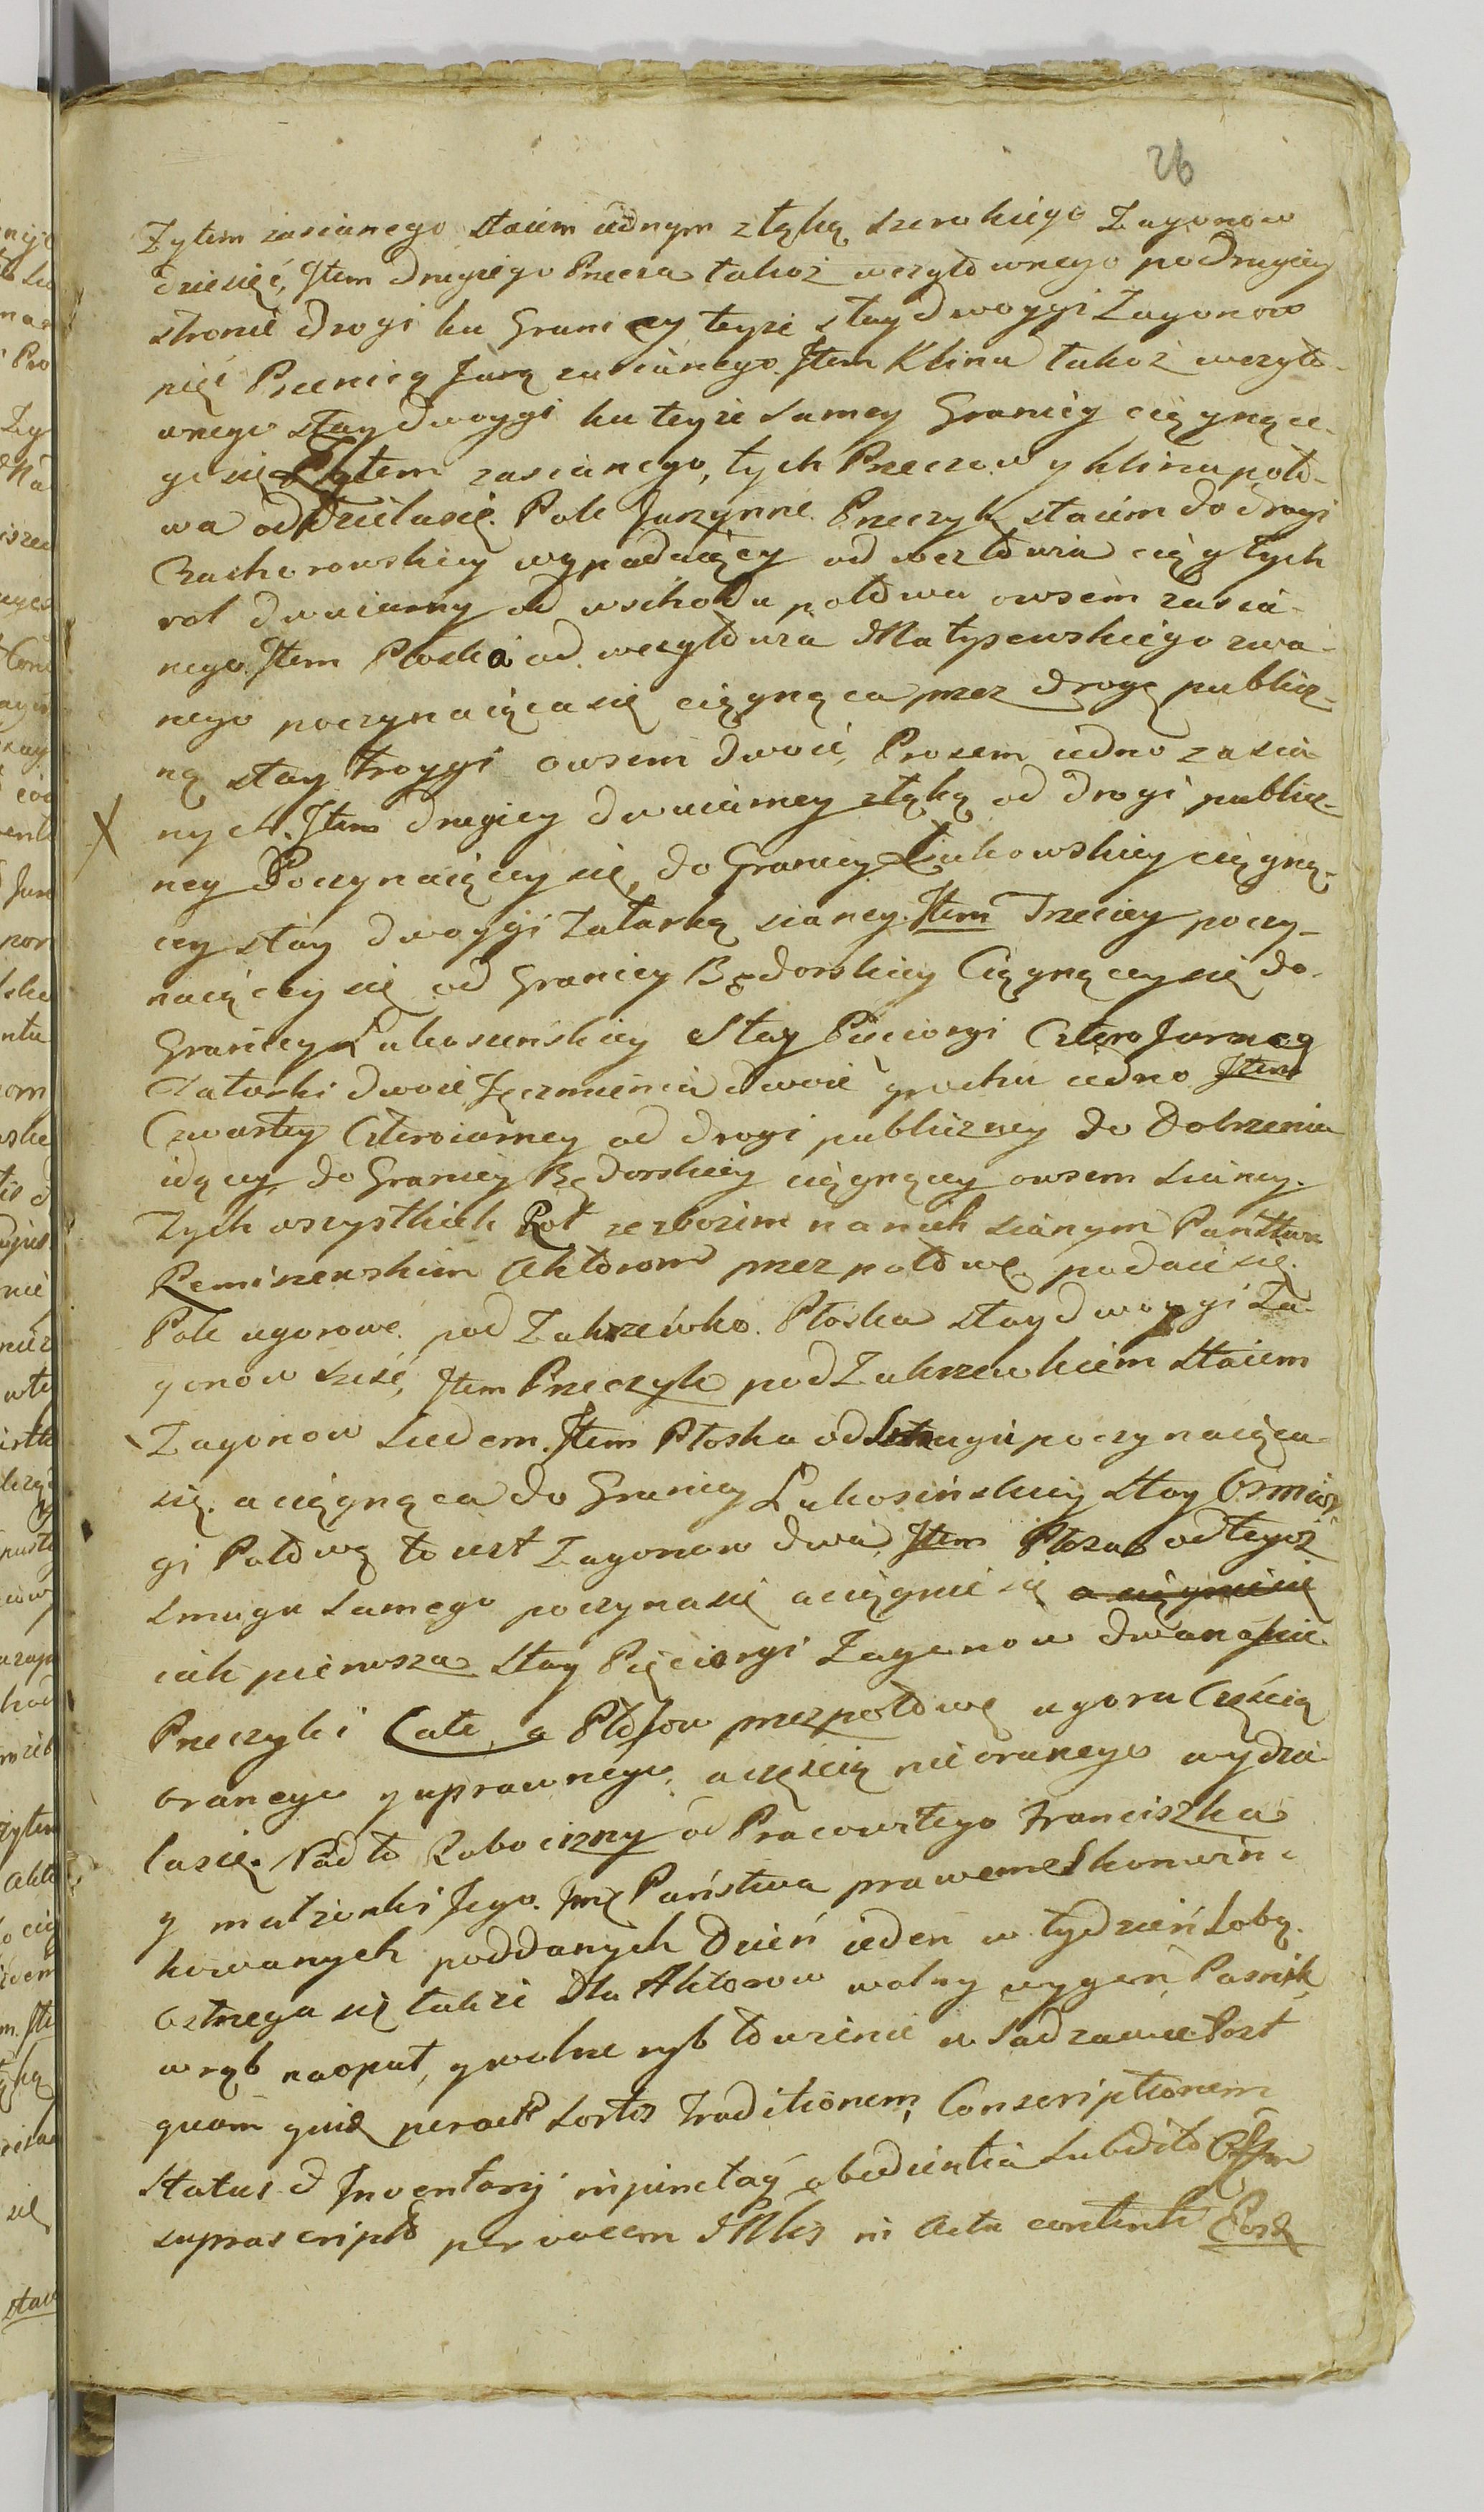 26
Zytem zasianego staiem iednym z łąką szerokiego Zagonow
dziesięć, Jtem drugiego Przecza takoż wezgłownego po drugiey
stronie drogi ku Granicy teyze stay dwoygi Zagonow
pięć Pszenicą Jarą zasianego. Jtem Klina takoż wezgło-
wnego stay dwoygi ku teyze samey Granicy ciągnące-
go się Żytem zasianego, tych Przeczow y klina poło-
wa oddziela się. Pole Jarzynne Przeczyk staiem do drogi
wypadaiący od wezłowia ciągłych
rol dwuiarny od wschodu połowa owsem zasia-
nego. Jtem Płoska od wezgłowia Matysewskiego zwa-
nego poczynaiąca się ciągnąca przez drogę publicz-
ną stay troygi owsem dwoie, Prosem iedno zasia-
X nych. Jtem drugiey dwuiarney z łąką od drogi publicz-
ney Poczynaiącey się, do Granicy Łukowskiey ciągną-
cey stay dwoygi Tatarką sianey. Jtem Trzeciey poczy-
naiącey się od Granicy Bądorskiey Ciągnącey się do
Granicy Łukosieńskiey Stay Pieciorgi Cztero Jarney
Tatarki dwoie Jęczmienia dwoie grochu iedno Jtem
Czwartey Czteroiarney od drogi publiczney do Dobrzenia
idącey, do Granicy Bądorskiey ciągnącey owsem sianey.
Tych wszystkich Rol ze zbozem na nich sianym Państwu
Remiszewskim Aktorom przez połowę podaie się.
Pole ugorowe pod Zakrzewko. Płoska stay dwoygi Za-
gonow sześć, Jtem Przeczyk pod Zakrzewkiem staiem
Zagonow siedem. Jtem Płoska od Smugu poczynaiąca
się a ciągnąca do Granicy Łukosińskiey Stay Osmior-
gi Połowę to iest Zagonow dwa, Jtem Płosa od tegoż
smugu samego poczyna się a ciągnie się a ciągnie się
iak pierwsza Stay Pięciorgi Zagonow dwanaście
Przeczyki Całe, a Płosow przez połowę ugoru Częścią
oranego y uprawnego, a częścią nieoranego wydzie-
la się. Nadto Robocizny od Pracowitego Franciszka
y małzonki Jego. Jmę Państwa prawem
kowanych poddanych Dzień ieden w tydzień Soby.
Ostrzega się także dla Aktorow wolny wygon, Pastwisk,
wrąb na opał, y wolne ryb łowienie w Sadzawce. Post
quam quid peractę Sortis Traditionem, Conscriptionem
Status & Inventarij injunctaq obedientia Subditis
suprascripto per vocem Mlis in Acta contenti Post